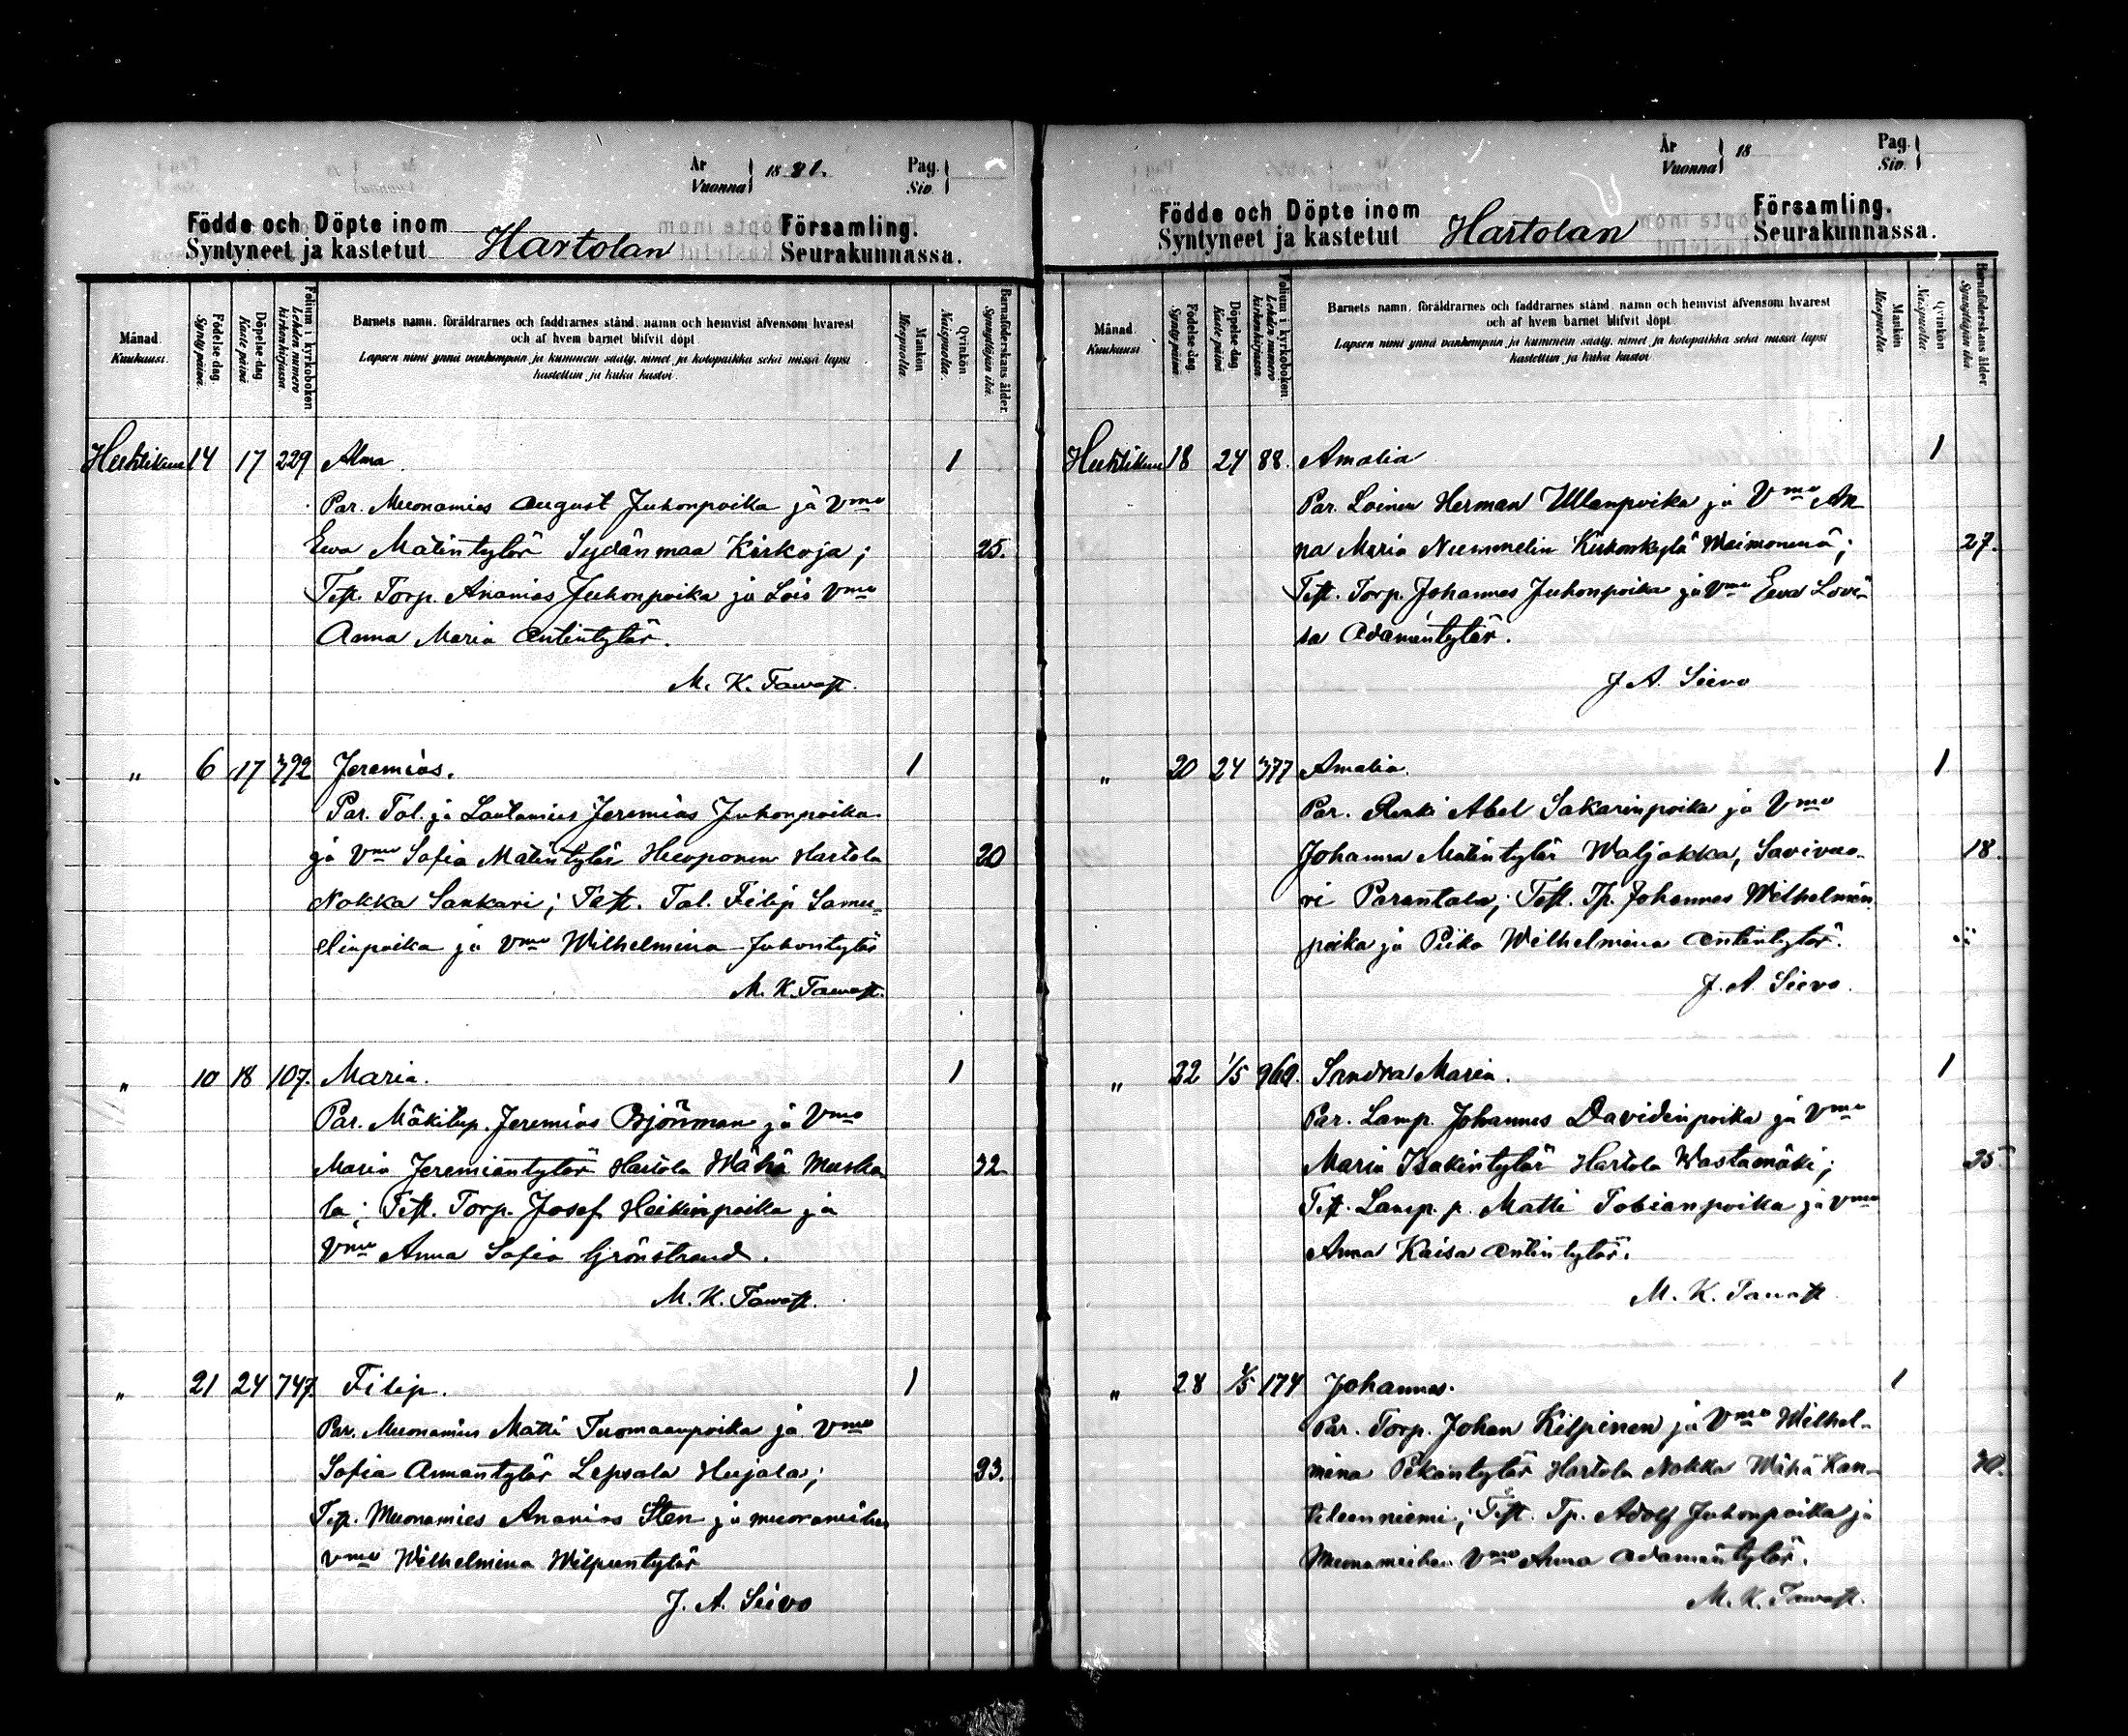 År
Vuonna 1881.
Pag.
Siv.
Födde och Döpte inom
Syntyneet ja kastetut
Hartolan
Församling.
Seurakunnassa.
Månad.
Kuukausi.
Födelse dag.
Syntypäivä.
Döpelse dag
Kastepäivä
Folium i kyrkoboken
Lehden numero
kirkonkirjassa.
Barnets namn, föräldrarnes och faddrarnes stånd, namn och hemvist äfvensom hvarest
och af hvem barnet blifvit döpt.
Lapsen nimi ynnä vanhempain ja kummein sääty, nimet ja kotopaikka sekä missä lapsi
kastettiin ja kuka kastoi.
Mankön
Miespuolia.
Qvinkön
Naispuolia.
Barnaföderskans ålder.
Synnyttäjän ikä.
Huhtikuu 14 17 229 Alma. 1
Par. Muonamies August Juhonpoika ja Vmo
Ewa Matintytär Sydänmaa Kirkoja; 25.
Test. Torp. Ananias Juhonpoika ja Lois Vmo
Anna Maria Antintytär.
M. K. Tawast.
" 6 17 392 Jeremias. 1
Par. Tal. ja Lautamies Jeremias Juhonpoika
ja Vmo Sofia Matintytär Huoponen Hartola 20
Nokka Sankari; Test. Tal. Filip Samu-
elinpoika ja Vmo Wilhelmina Juhontytär
M. K. Tawast.
" 10 18 107. Maria. 1
Par. Mäkitup. Jeremias Björnman ja Vmo
Maria Jeremiantytär Hartola Wähä Muska- 32
la; Test. Torp. Josef Heikinpoika ja
Vmo Anna Sofia Grönstrand.
M. K. Tawast.
" 21 24 747. Filip. 1
Par. Muonamies Matti Tuomaanpoika ja Vmo
Sofia Annantytär Lepsala Hujala; 23.
Test. Muonamies Ananias Sten ja muonamiehen
vmo Wilhelmina Wilpuntytär
J. A. Siivo
År
Vuonna 18
Pag.
Siv.
Födde och Döpte inom
Syntyneet ja kastetut
Hartolan
Församling.
Seurakunnassa.
Månad.
Kuukausi
Födelse dag.
Syntypäivä.
Döpelse dag
Kastepäivä
Folium i kyrkoboken.
Lehden numero
kirkonkirjassa.
Barnets namn, föräldrarnes och faddrarnes stånd, namn och hemvist äfvensom hvarest
och af hvem barnet blifvit döpt.
Lapsen nimi ynnä vanhempain ja kummein sääty, nimet ja kotopaikka sekä missä lapsi
kastettiin ja kuka kastoi.
Mankön
Miespuolia.
Qvinkön
Naispuolia.
Barnaföderskans ålder
Synnyttäjän ikä.
Huhtikuu 18 24 88. Amalia 1
Par. Loinen Herman Ullanpoika ja Vmo An-
na Maria Nummelin Kirkonkylä Waimonenä; 27.
Test. Torp. Johannes Juhonpoika ja Vmo Ewa Lovi-
sa Adamintytär.
J A. Siivo
" 20 24 377 Amalia. 1
Par. Renki Abel Sakarinpoika ja Vmo
Johanna Matintytär Waljakka, Savivuo- 18.
ri Parantala; Test. Tp. Johannes Wilhelmin
poika ja Piika Wilhelmina Antintytär.
J. A. Siivo.
" 22 1/5 960. Sandra Maria. 1
Par. Lamp. Johannes Davidinpoika ja Vmo
Maria Isakintytär Hartola Wastamäki; 35
Test. Lamp. p. Matti Tobianpoika ja vmo
Anna Kaisa Antintytär.
M. K. Tawast
" 28 1/5 174 Johannes. 1
Par. Torp. Johan Kilpinen ja Vmo Wilhel-
mina Pekantytär Hartola Nokka Wähä Kan- 30.
teleenniemi; Test. Tp. Adolf Juhonpoika ja
Muonamiehen Vmo Anna Adamintytär.
M. K. Tawast.